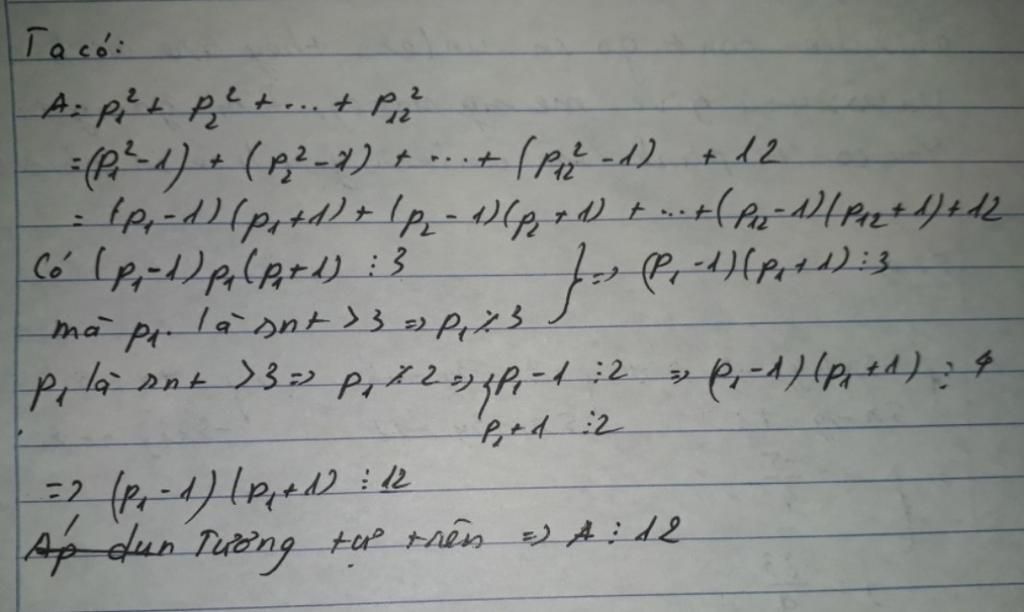 Ta có:
A = p₁² + p₂² + ... + p₁₂²
= (p₁² - 1) + (p₂² - 1) + ... + (p₁₂² - 1) + 12
= (p₁ - 1)(p₁ + 1) + (p₂ - 1)(p₂ + 1) + ... + (p₁₂ - 1)(p₁₂ + 1) + 12
Có (p₁ - 1) p₁ (p₁ + 1) ⋮ 3 } => (p₁ - 1)(p₁ + 1) ⋮ 3
mà p₁. là snt > 3 => p₁ ⋮̸ 3
p₁ là snt > 3 => p₁ ⋮̸ 2 => { p₁ - 1 ⋮ 2 => (p₁ - 1)(p₁ + 1) ⋮ 4
p₁ + 1 ⋮ 2
=> (p₁ - 1)(p₁ + 1) ⋮ 12
Áp dun Tương tự trên => A ⋮ 12